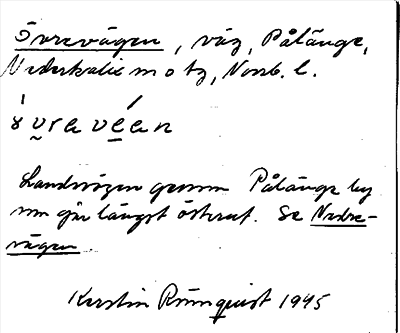 Övrevägen, väg, Pålänge,
Nederkalix m o tg, Norrb. l.
Landsvägen genom Pålänge by
som går längst österut. Se Nedre-
vägen
Kerstin Rönnquist 1945